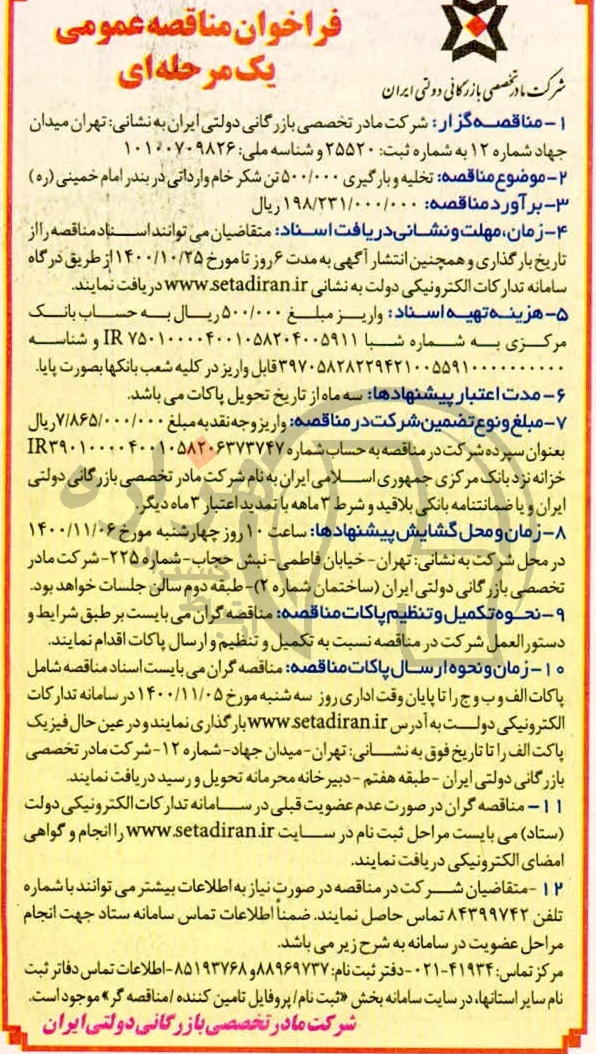 فراخوان مناقصه عمومی
یک مرحله‌ای
شرکت مادر تخصصی بازرگانی دولتی ایران
۱- مناقصه‌گزار: شرکت مادر تخصصی بازرگانی دولتی ایران به نشانی: تهران میدان
جهاد شماره ۱۲ به شماره ثبت: ۲۵۵۲۰ و شناسه ملی: ۱۰۱۰۰۷۰۹۸۲۶
۲- موضوع مناقصه: تخلیه و بارگیری ۵۰۰/۰۰۰ تن شکر خام وارداتی در بندر امام خمینی (ره)
۳- برآورد مناقصه: ۱۹۸/۲۳۱/۰۰۰/۰۰۰ ریال
۴- زمان، مهلت و نشانی دریافت اسناد: متقاضیان می توانند اسناد مناقصه را از
تاریخ بارگذاری و همچنین انتشار آگهی به مدت ۶ روز تا مورخ ۱۴۰۰/۱۰/۲۵ از طریق درگاه
سامانه تدارکات الکترونیکی دولت به نشانی www.setadiran.ir دریافت نمایند.
۵- هزینه تهیه اسناد: واریز مبلغ ۵۰۰/۰۰۰ ریال به حساب بانک
مرکزی به شماره شبا IR ۷۵۰۱۰۰۰۰۴۰۰۱۰۵۸۲۰۴۰۰۵۹۱۱ و شناسه
۳۹۷۰۵۸۲۸۲۲۹۴۲۱۰۰۵۵۹۱۰۰۰۰۰۰۰۰۰۰ قابل واریز در کلیه شعب بانکها بصورت پایا.
۶- مدت اعتبار پیشنهادها: سه ماه از تاریخ تحویل پاکات می باشد.
۷- مبلغ و نوع تضمین شرکت در مناقصه: واریز وجه نقد به مبلغ ۷/۸۶۵/۰۰۰/۰۰۰ ریال
بعنوان سپرده شرکت در مناقصه به حساب شماره IR۳۹۰۱۰۰۰۰۴۰۰۱۰۵۸۲۰۶۳۷۳۷۴۷
خزانه نزد بانک مرکزی جمهوری اسلامی ایران به نام شرکت مادر تخصصی بازرگانی دولتی
ایران و یا ضمانتنامه بانکی بلاقید و شرط ۳ ماهه با تمدید اعتبار ۳ ماه دیگر.
۸- زمان و محل گشایش پیشنهادها: ساعت ۱۰ روز چهارشنبه مورخ ۱۴۰۰/۱۱/۰۶
در محل شرکت به نشانی: تهران- خیابان فاطمی- نبش حجاب- شماره ۲۲۵- شرکت مادر
تخصصی بازرگانی دولتی ایران (ساختمان شماره ۲)- طبقه دوم سالن جلسات خواهد بود.
۹- نحوه تکمیل و تنظیم پاکات مناقصه: مناقصه گران می بایست بر طبق شرایط و
دستورالعمل شرکت در مناقصه نسبت به تکمیل و تنظیم و ارسال پاکات اقدام نمایند.
۱۰- زمان و نحوه ارسال پاکات مناقصه: مناقصه گران می بایست اسناد مناقصه شامل
پاکات الف و ب و ج را تا پایان وقت اداری روز سه شنبه مورخ ۱۴۰۰/۱۱/۰۵ در سامانه تدارکات
الکترونیکی دولت به آدرس www.setadiran.ir بارگذاری نمایند و در عین حال فیزیک
پاکت الف را تا تاریخ فوق به نشانی: تهران- میدان جهاد- شماره ۱۲- شرکت مادر تخصصی
بازرگانی دولتی ایران - طبقه هفتم - دبیرخانه محرمانه تحویل و رسید دریافت نمایند.
۱۱- مناقصه گران در صورت عدم عضویت قبلی در سامانه تدارکات الکترونیکی دولت
(ستاد) می بایست مراحل ثبت نام در سایت www.setadiran.ir را انجام و گواهی
امضای الکترونیکی دریافت نمایند.
۱۲- متقاضیان شرکت در مناقصه در صورت نیاز به اطلاعات بیشتر می توانند با شماره
تلفن ۸۴۳۹۹۷۴۲ تماس حاصل نمایند. ضمناً اطلاعات تماس سامانه ستاد جهت انجام
مراحل عضویت در سامانه به شرح زیر می باشد.
مرکز تماس: ۴۱۹۳۴-۰۲۱- دفتر ثبت نام: ۸۸۹۶۹۷۳۷ و ۸۵۱۹۳۷۶۸- اطلاعات تماس دفاتر ثبت
نام سایر استانها، در سایت سامانه بخش «ثبت نام/ پروفایل تامین کننده / مناقصه گر» موجود است.
شرکت مادر تخصصی بازرگانی دولتی ایران